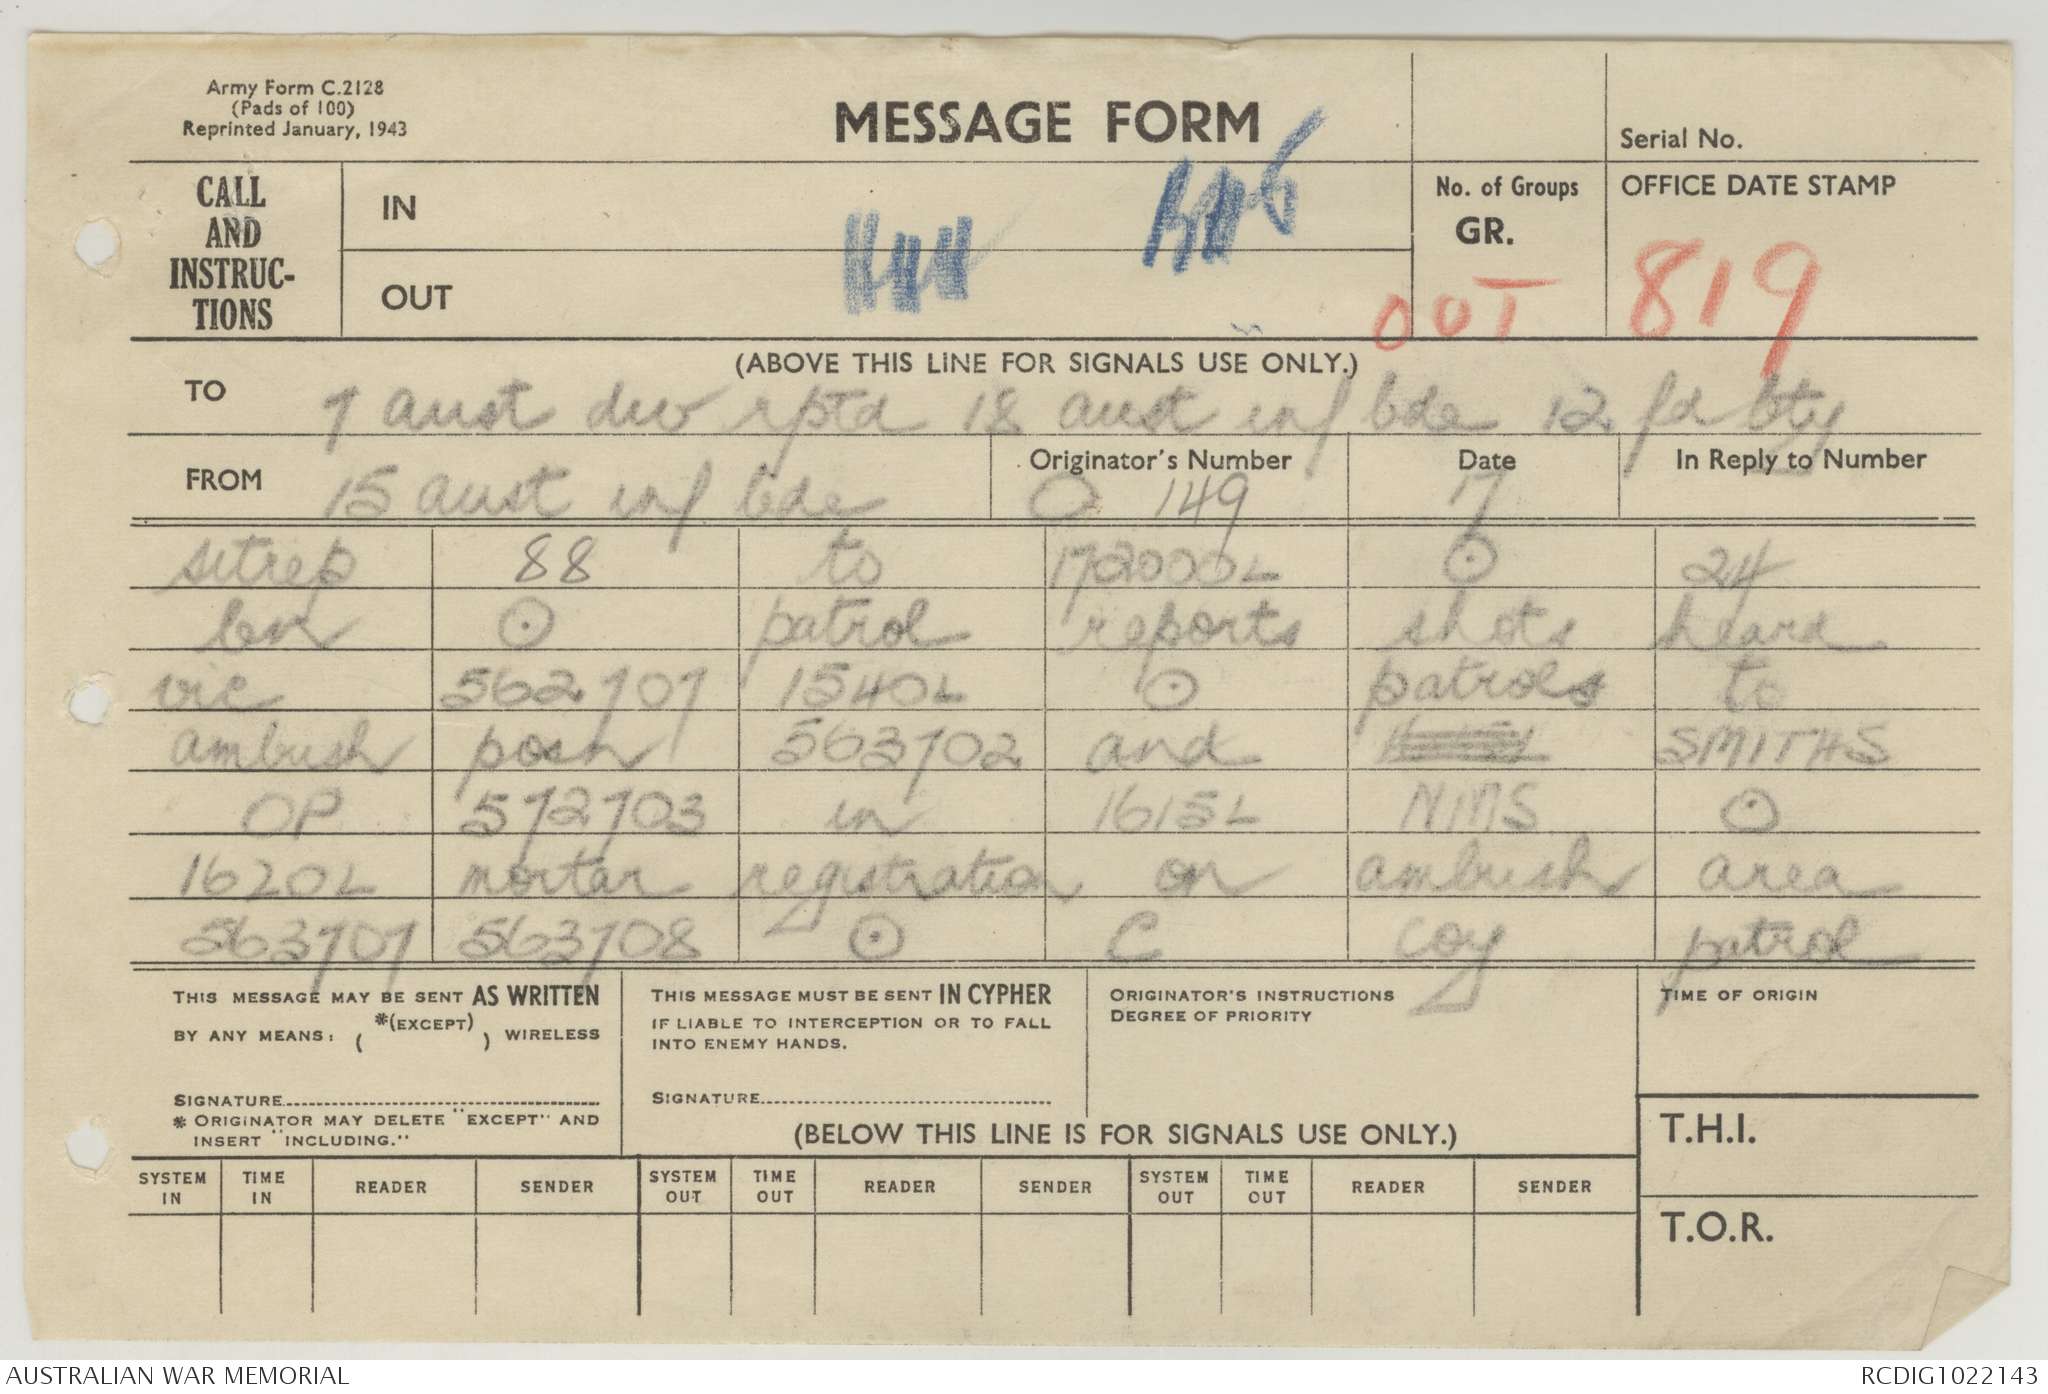 Army Form C.2128
(Pads of 100)
Reprinted January, 1943
MESSAGE FORM
Serial No.
CALL AND INSTRUC-TIONS
IN
OUT
No. of Groups
GR.
OFFICE DATE STAMP
OUT 819
(ABOVE THIS LINE FOR SIGNALS USE ONLY.)
TO 7 aust div rptd 18 aust inf bde 12 fd bty
FROM 15 aust inf bde Originator's Number O 149 Date 17 In Reply to Number
sitrep 88 to 172000L ⊙ 24
bn ⊙ patrol reports shots heard
vic 562707 1540L ⊙ patrols to
ambush posn 563702 and SMITHS
OP 572703 in 1615L NMS ⊙
1620L mortar registration on ambush area
563707 563708 ⊙ C coy patrol
THIS MESSAGE MAY BE SENT AS WRITTEN
BY ANY MEANS: ( *(EXCEPT) ) WIRELESS
SIGNATURE
* ORIGINATOR MAY DELETE "EXCEPT" AND
INSERT "INCLUDING."
THIS MESSAGE MUST BE SENT IN CYPHER
IF LIABLE TO INTERCEPTION OR TO FALL
INTO ENEMY HANDS.
SIGNATURE
ORIGINATOR'S INSTRUCTIONS
DEGREE OF PRIORITY
TIME OF ORIGIN
(BELOW THIS LINE IS FOR SIGNALS USE ONLY.)
T.H.I.
T.O.R.
SYSTEM IN TIME IN READER SENDER SYSTEM OUT TIME OUT READER SENDER SYSTEM OUT TIME OUT READER SENDER
AUSTRALIAN WAR MEMORIAL
RCDIG1022143